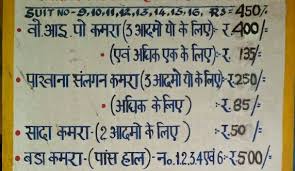 SUIT NO-9,10,11,12,13,14,15,16, RS=450/-
• वी आइ. पी कमरा (3 आदमी यो के लिए)- रु.400/-
(एवं अधिक एक के लिए) रु. 135/-
• पारवाना संलगन कमरा (3 आदमी यो के लिए) रु250/-
(अधिक के लिए) रु.85/-
• सादा कमरा-(2 आदमी के लिए) रु.50/-
• बडा कमरा-(पांस हाल)- no.1.2.3.4 एवं 6-रु500/-